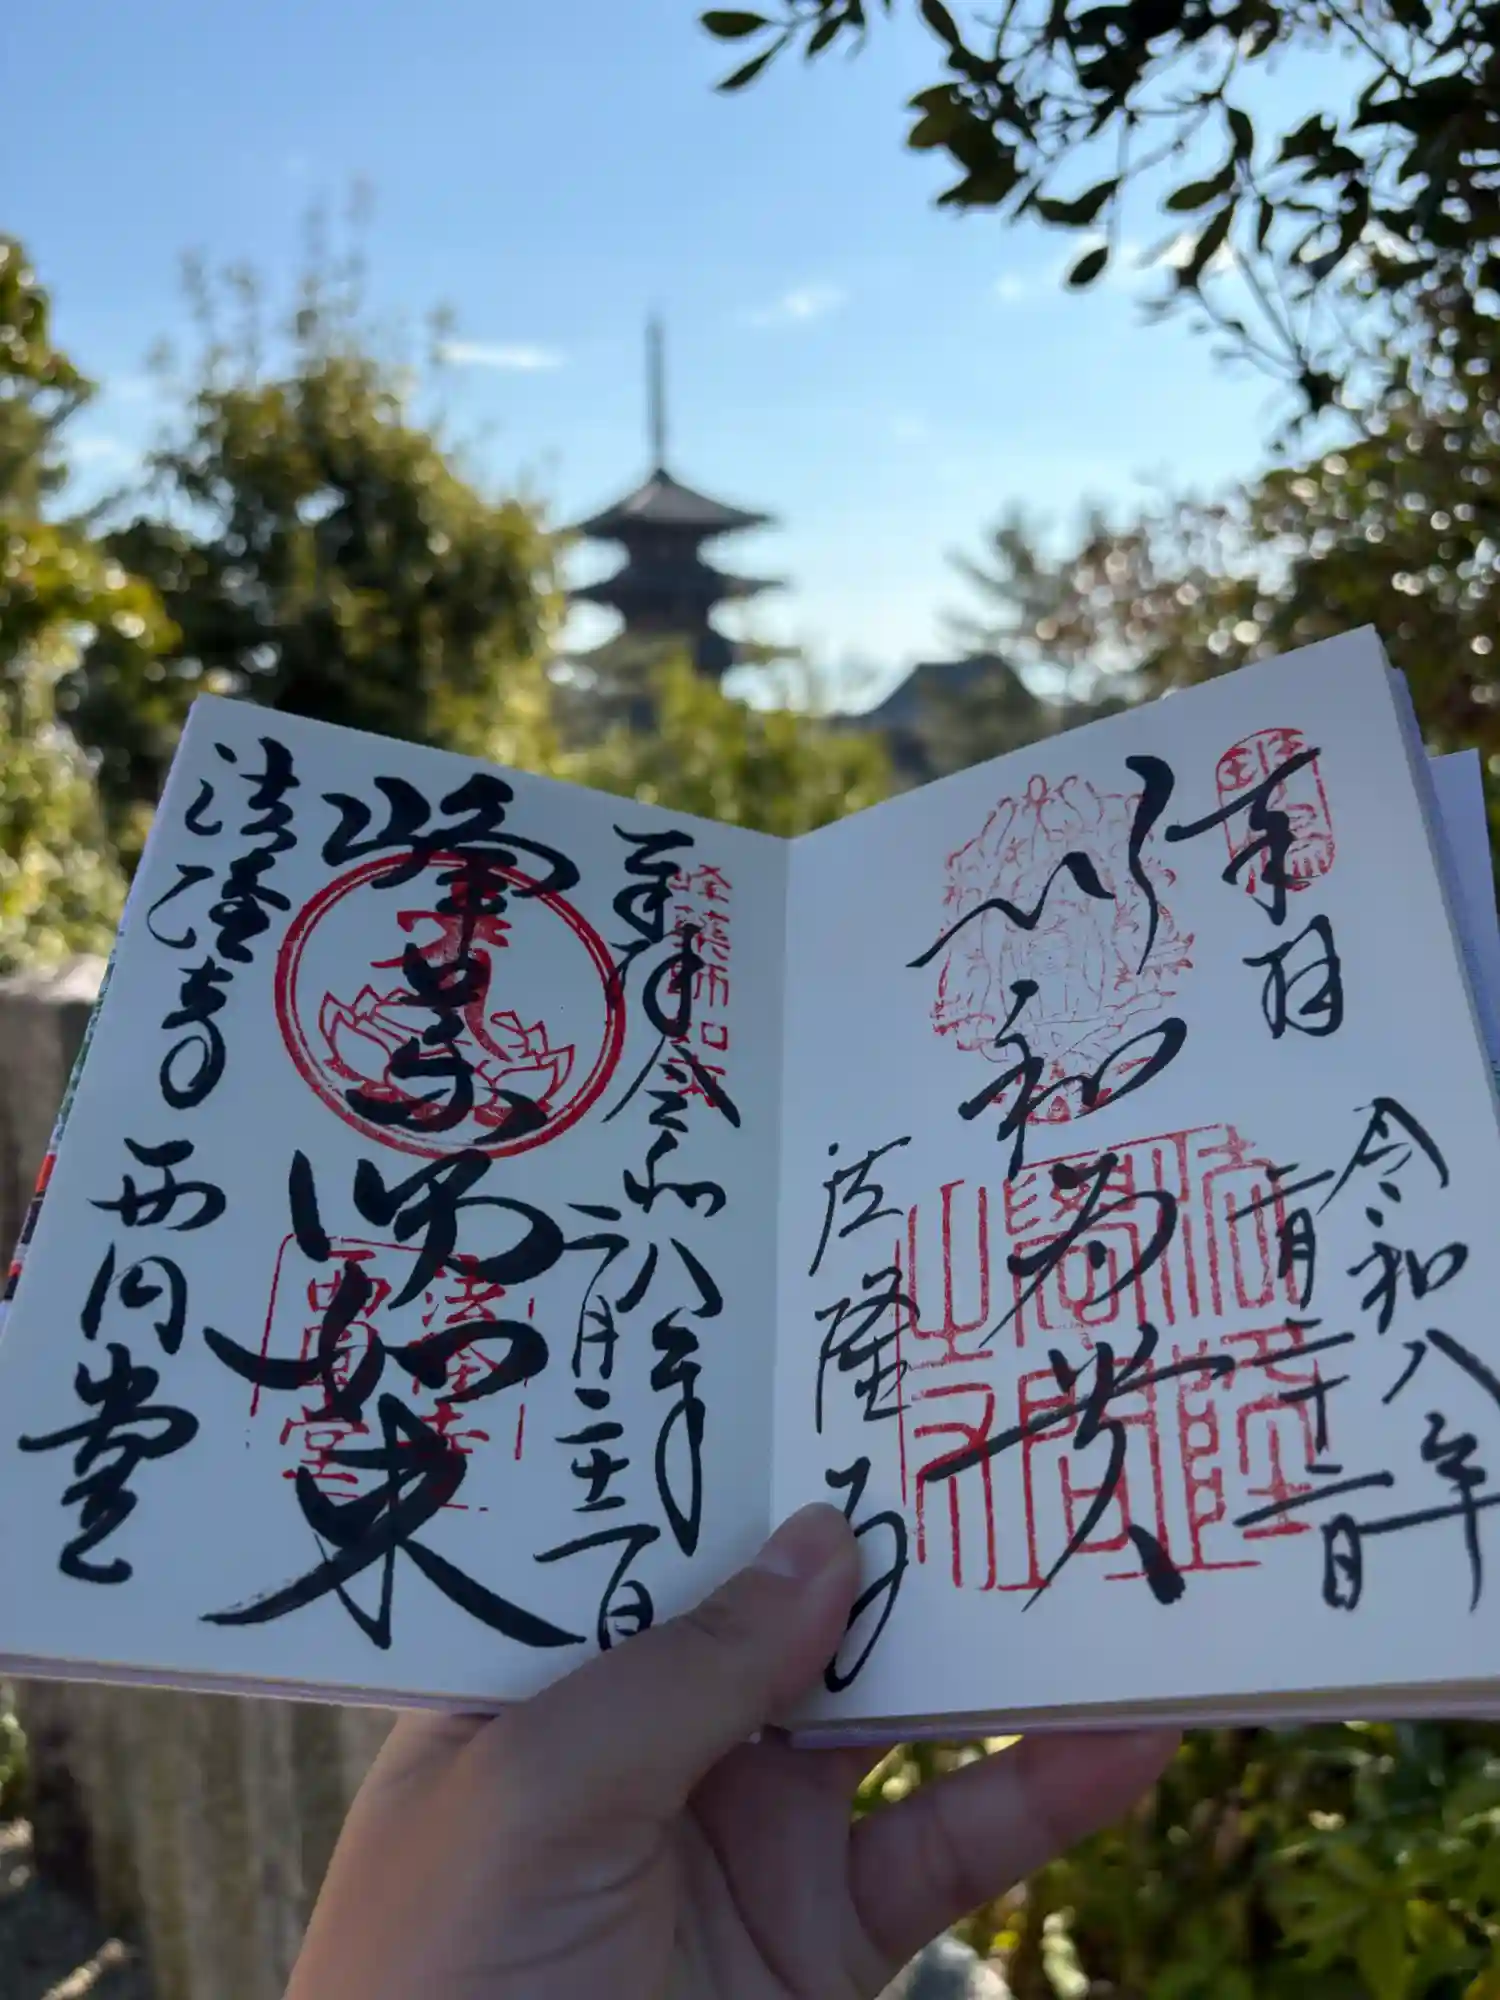 奉拝
令和八年
二月二十二日
以和為貴
法隆寺
奉拝 令和八年
二月二十二日
峯薬師如来
法隆寺 西円堂